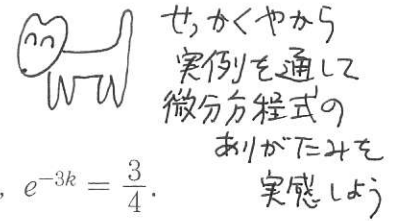 せっかくやから
実例を通して
微分方程式の
ありがたみを
実感しよう
, e^{-3k} = \frac{3}{4}.